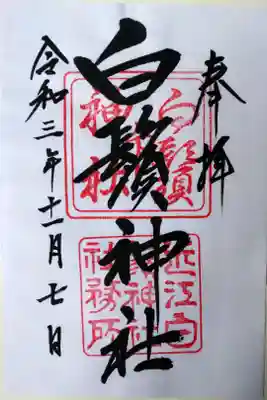 奉拝
白鬚神社
令和三年十一月七日
白鬚
神社
近江白
鬚神社
社務所